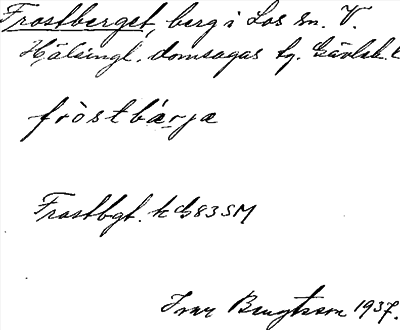 Frostberget, berg i Los sn. V.
Hälsingl. domsagas tg. Gävleb. l
fròstbárja
Frostbgt. k 83SM
Ivar Bengtsson 1937.